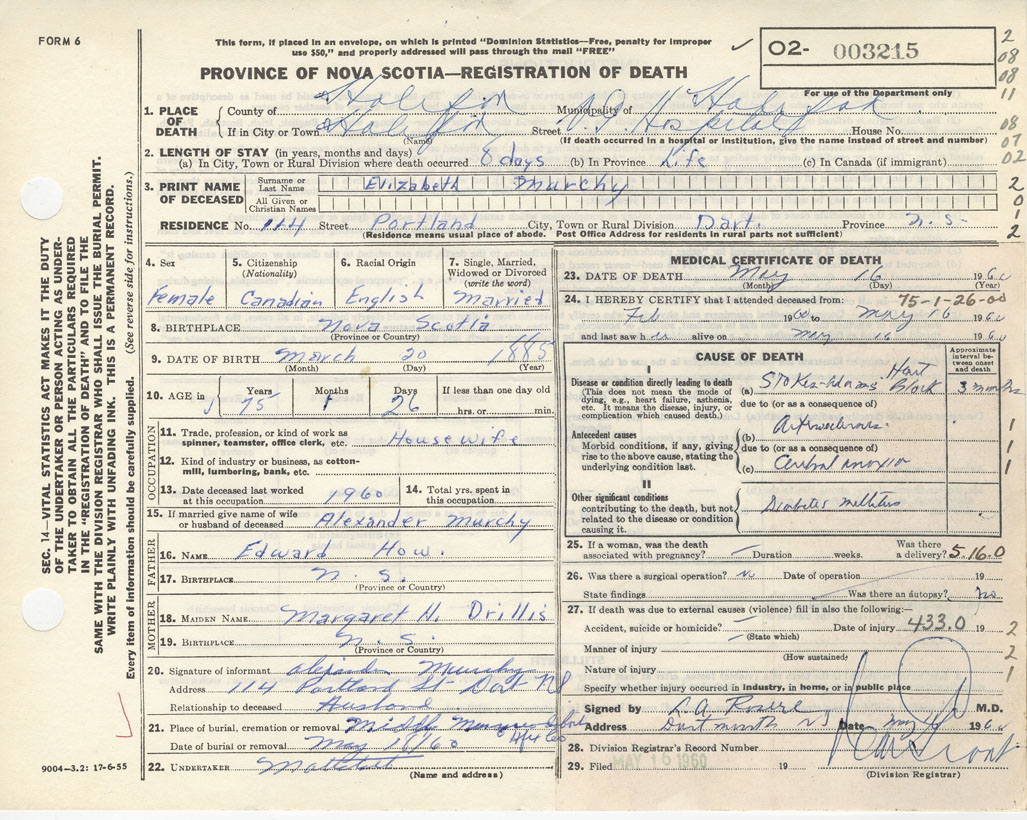 FORM 6
This form, if placed in an envelope, on which is printed "Dominion Statistics—Free, penalty for improper
use $50," and properly addressed will pass through the mail "FREE"
O2- 003215
For use of the Department only
PROVINCE OF NOVA SCOTIA—REGISTRATION OF DEATH
2
08
08
11
08
07
02
2
0
1
2
1. PLACE OF DEATH
County of Halifax Municipality of Halifax
If in City or Town Halifax Street V.G. Hospital House No.
(Name) (If death occurred in a hospital or institution, give the name instead of street and number)
2. LENGTH OF STAY (in years, months and days)
(a) In City, Town or Rural Division where death occurred 8 days (b) In Province Life (c) In Canada (if immigrant)
3. PRINT NAME OF DECEASED
Surname or Last Name Elizabeth Murchy
All Given or Christian Names
RESIDENCE No. 114 Street Portland City, Town or Rural Division Dart. Province N.S.
(Residence means usual place of abode. Post Office Address for residents in rural parts not sufficient)
4. Sex Female
5. Citizenship (Nationality) Canadian
6. Racial Origin English
7. Single, Married, Widowed or Divorced (write the word) Married
8. BIRTHPLACE Nova Scotia
(Province or Country)
9. DATE OF BIRTH March 20 1885
(Month) (Day) (Year)
10. AGE in Years 75 Months 1 Days 26 If less than one day old
hrs. or min.
OCCUPATION
11. Trade, profession, or kind of work as spinner, teamster, office clerk, etc. Housewife
12. Kind of industry or business, as cotton-mill, lumbering, bank, etc.
13. Date deceased last worked at this occupation 1960
14. Total yrs. spent in this occupation
15. If married give name of wife or husband of deceased Alexander Murchy
FATHER
16. NAME Edward How.
17. BIRTHPLACE N.S.
(Province or Country)
MOTHER
18. MAIDEN NAME Margaret H. Drillis
19. BIRTHPLACE N.S.
(Province or Country)
20. Signature of informant Alexander Murchy
Address 114 Portland St Dart NS
Relationship to deceased Husband
21. Place of burial, cremation or removal Middle Musquodoboit
Hfx Co
Date of burial or removal May 18/60
22. UNDERTAKER
(Name and address)
9004-3.2: 17-6-55
SEC. 14—VITAL STATISTICS ACT MAKES IT THE DUTY
OF THE UNDERTAKER OR PERSON ACTING AS UNDER-
TAKER TO OBTAIN ALL THE PARTICULARS REQUIRED
IN THE "REGISTRATION OF DEATH" AND TO FILE THE
SAME WITH THE DIVISION REGISTRAR WHO SHALL ISSUE THE BURIAL PERMIT.
WRITE PLAINLY WITH UNFADING INK. THIS IS A PERMANENT RECORD.
Every item of information should be carefully supplied. (See reverse side for instructions.)
MEDICAL CERTIFICATE OF DEATH
23. DATE OF DEATH May 16 1960
(Month) (Day) (Year)
24. I HEREBY CERTIFY that I attended deceased from: 75-1-26-00
Feb 1960 to May 16 1960
and last saw her alive on May 16 1960
CAUSE OF DEATH
Approximate interval between onset and death
I
Disease or condition directly leading to death
(This does not mean the mode of dying, e.g., heart failure, asthenia, etc. It means the disease, injury, or complication which caused death.)
(a) Stokes-Adams Hart Block 3 months
due to (or as a consequence of)
Antecedent causes
Morbid conditions, if any, giving rise to the above cause, stating the underlying condition last.
(b) Arthrosclerosis
due to (or as a consequence of)
(c) Cerebral anoxia
II
Other significant conditions
contributing to the death, but not related to the disease or condition causing it.
Diabetes mellitus
1
1
1
25. If a woman, was the death associated with pregnancy? — Duration weeks. Was there a delivery? 5.16.0
26. Was there a surgical operation? No Date of operation 19
State findings Was there an autopsy? No
27. If death was due to external causes (violence) fill in also the following:—
Accident, suicide or homicide? — Date of injury 433.0 19
(State which)
Manner of injury
(How sustained)
Nature of injury
Specify whether injury occurred in industry, in home, or in public place
2
2
1
Signed by M.D.
Address Dartmouth NS Date May 16 1960
28. Division Registrar's Record Number
29. Filed MAY 16 1960 19
(Division Registrar)